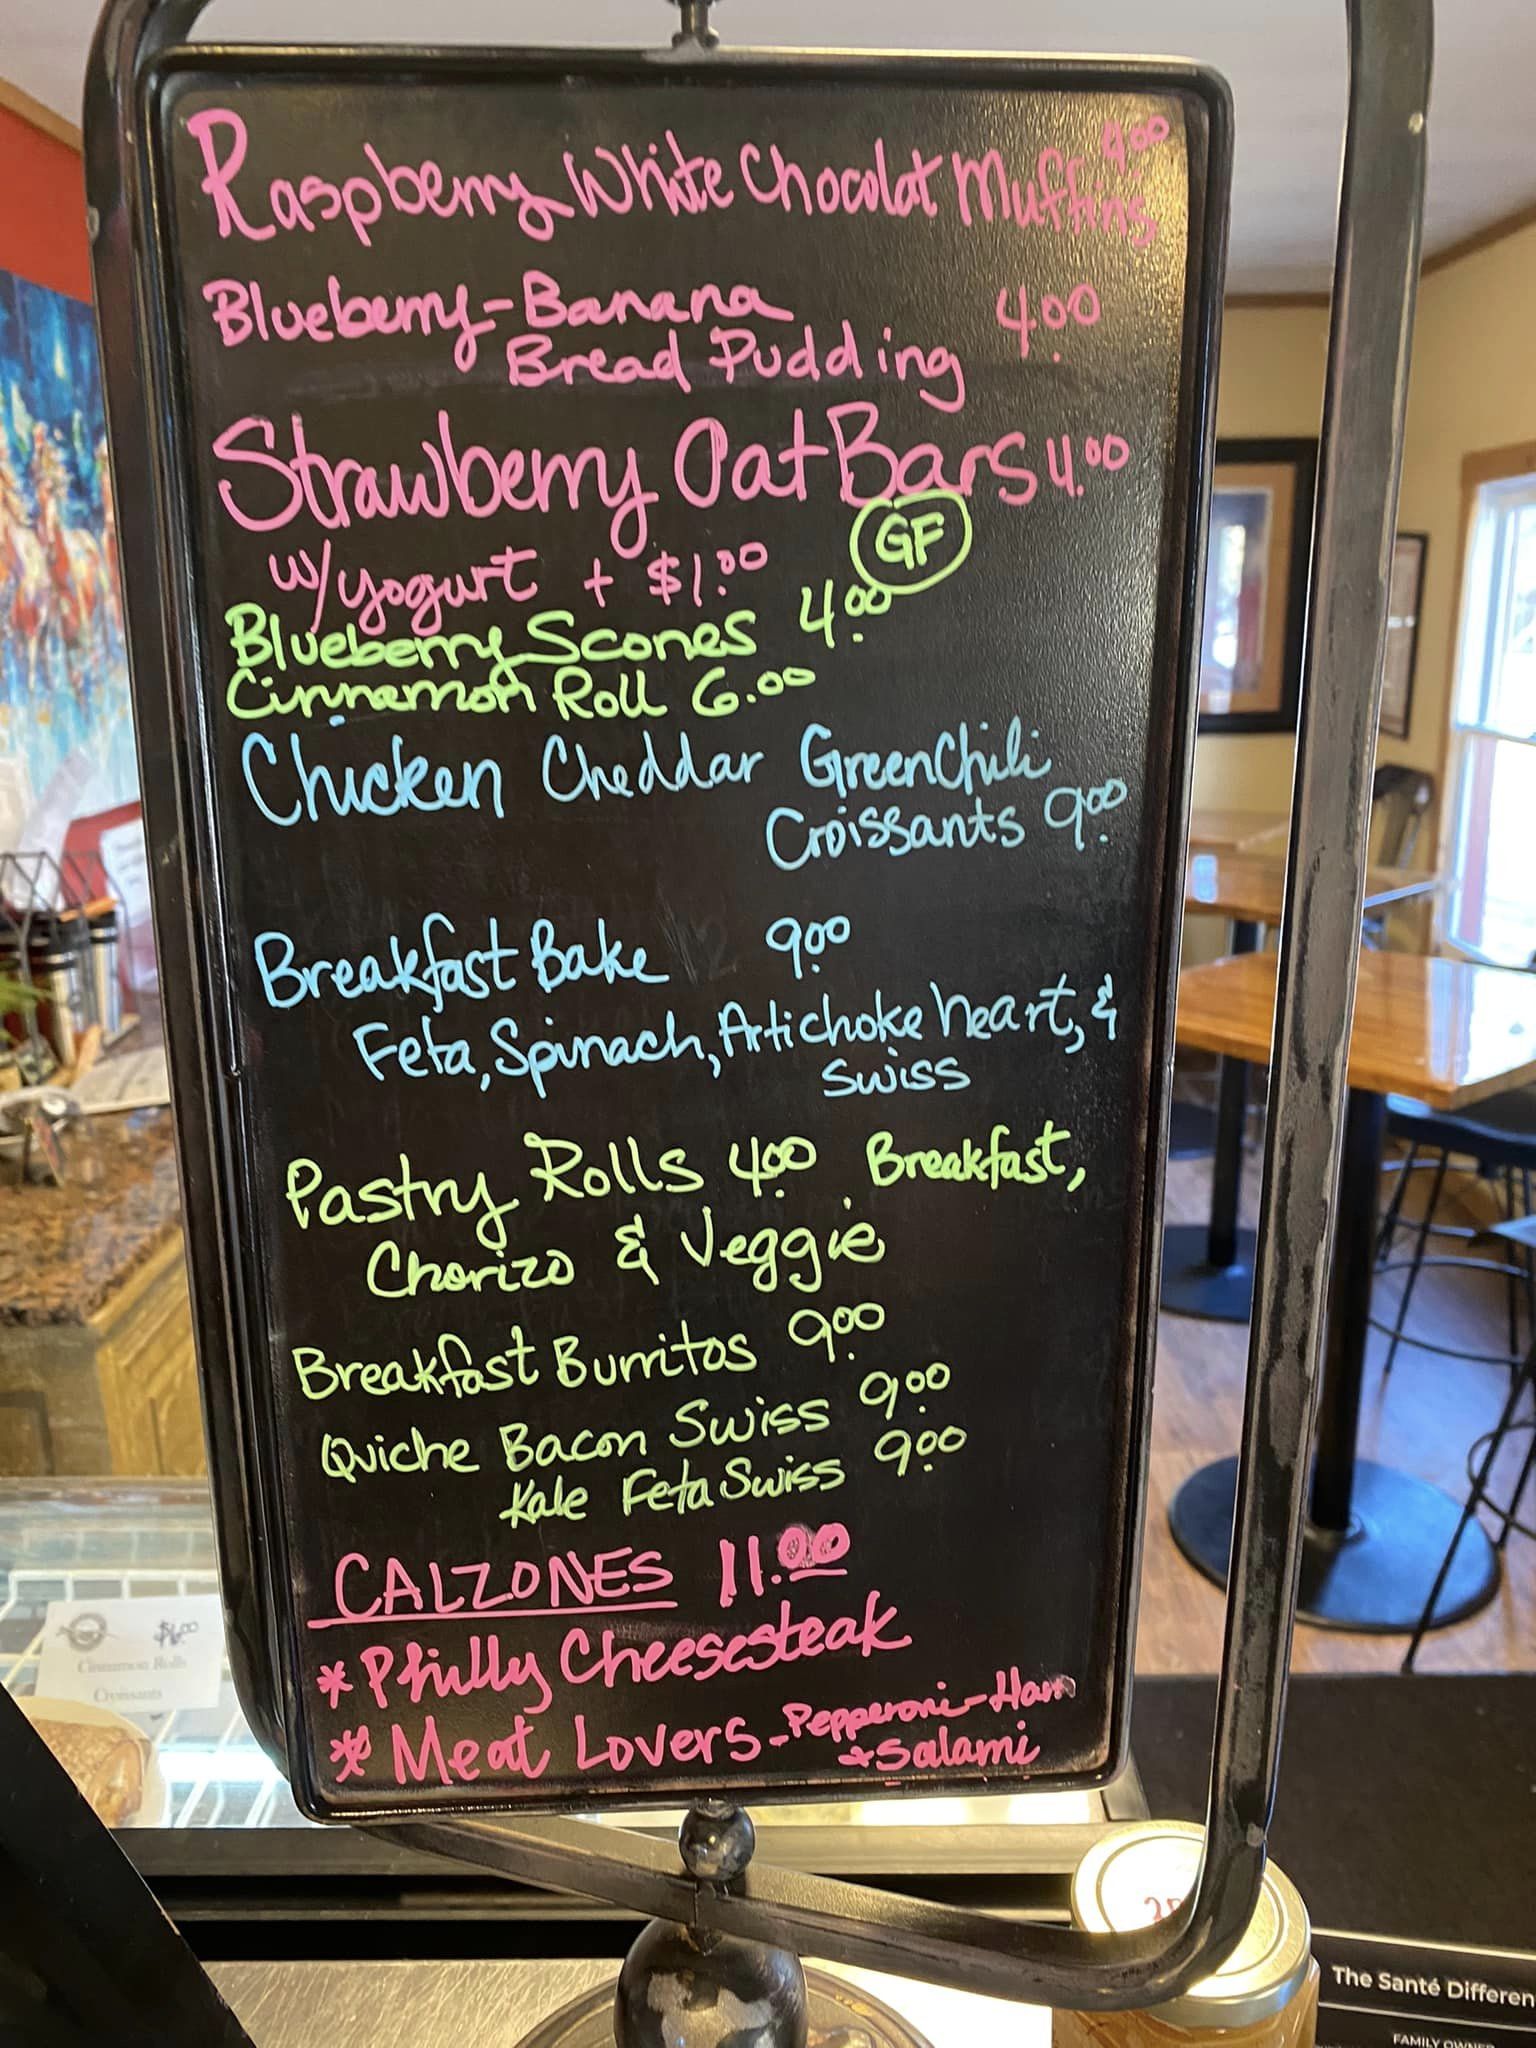 Raspberry White Chocolat Muffins 4.00
Blueberry-Banana 4.00
Bread Pudding
Strawberry Oat Bars 4.00
w/yogurt + $1.00 GF
Blueberry Scones 4.00
Cinnamon Roll 6.00
Chicken Cheddar Green Chili
Croissants 9.00
Breakfast Bake 9.00
Feta, Spinach, Artichoke heart, &
Swiss
Pastry Rolls 4.00 Breakfast,
Chorizo & Veggie
Breakfast Burritos 9.00
Quiche Bacon Swiss 9.00
Kale Feta Swiss 9.00
CALZONES 11.00
* Philly Cheesesteak
* Meat Lovers - Pepperoni - Ham
+ Salami
$6.00
Cinnamon Rolls
Croissants
The Santé Differen
FAMILY OWNED